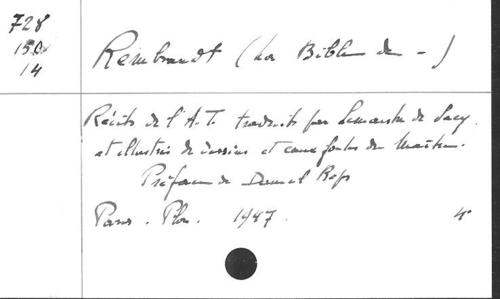 728
150
14
Rembrandt (La Bible de -)
Récits de l'A.T. traduits par Lemaistre de Sacy
et illustrés de dessins et eaux fortes du Maître.
Préface de Daniel Rops
Paris. Plon. 1947. 4°